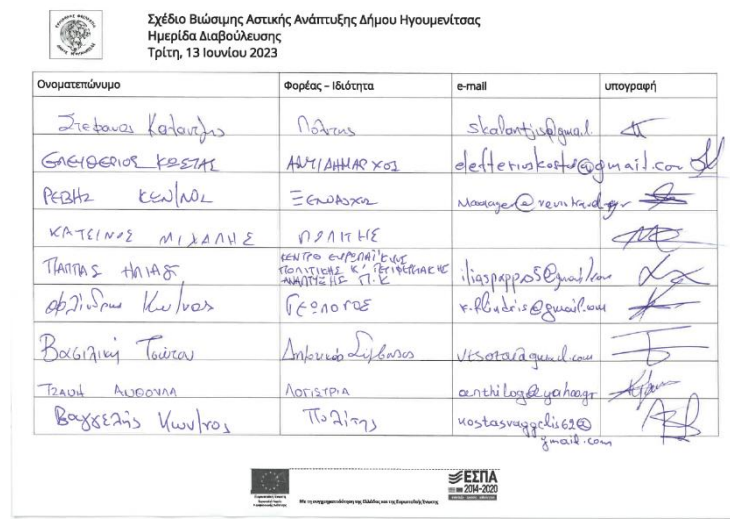 Σχέδιο Βιώσιμης Αστικής Ανάπτυξης Δήμου Ηγουμενίτσας
Ημερίδα Διαβούλευσης
Τρίτη, 13 Ιουνίου 2023
Ονοματεπώνυμο Φορέας – Ιδιότητα e-mail υπογραφή
Στέφανος Καλαντζής Πολίτης skalantjis@gmail.
ΕΛΕΥΘΕΡΙΟΣ ΚΩΣΤΑΣ ΑΝΤΙΔΗΜΑΡΧΟΣ elefterioskostas@gmail.com
ΡΕΒΗΣ ΚΩΝ/ΝΟΣ
ΚΑΤΣΙΝΟΣ ΜΙΧΑΛΗΣ ΠΟΛΙΤΗΣ
ΠΑΠΠΑΣ ΗΛΙΑΣ ΚΕΝΤΡΟ ΕΥΡΩΠΑΪΚΗΣ
ΠΟΛΙΤΙΚΗΣ Κ' ΠΕΡΙΦΕΡΕΙΑΚΗΣ
ΑΝΑΠΤΥΞΗΣ Π.Κ iliaspappas5@gmail.com
Φλίνδρης Κων/νος ΓΕΩΛΟΓΟΣ k.flindris@gmail.com
Βασιλική Τσώτου Δημοτικός Σύμβουλος
ΤΖΑΝΗ ΑΝΘΟΥΛΑ ΛΟΓΙΣΤΡΙΑ anthilog@yahoo.gr
Βαγγελής Κων/νος Πολίτης kostasvaggelis62@
gmail.com
Με τη συγχρηματοδότηση της Ελλάδας και της Ευρωπαϊκής Ένωσης
ΕΣΠΑ
2014-2020